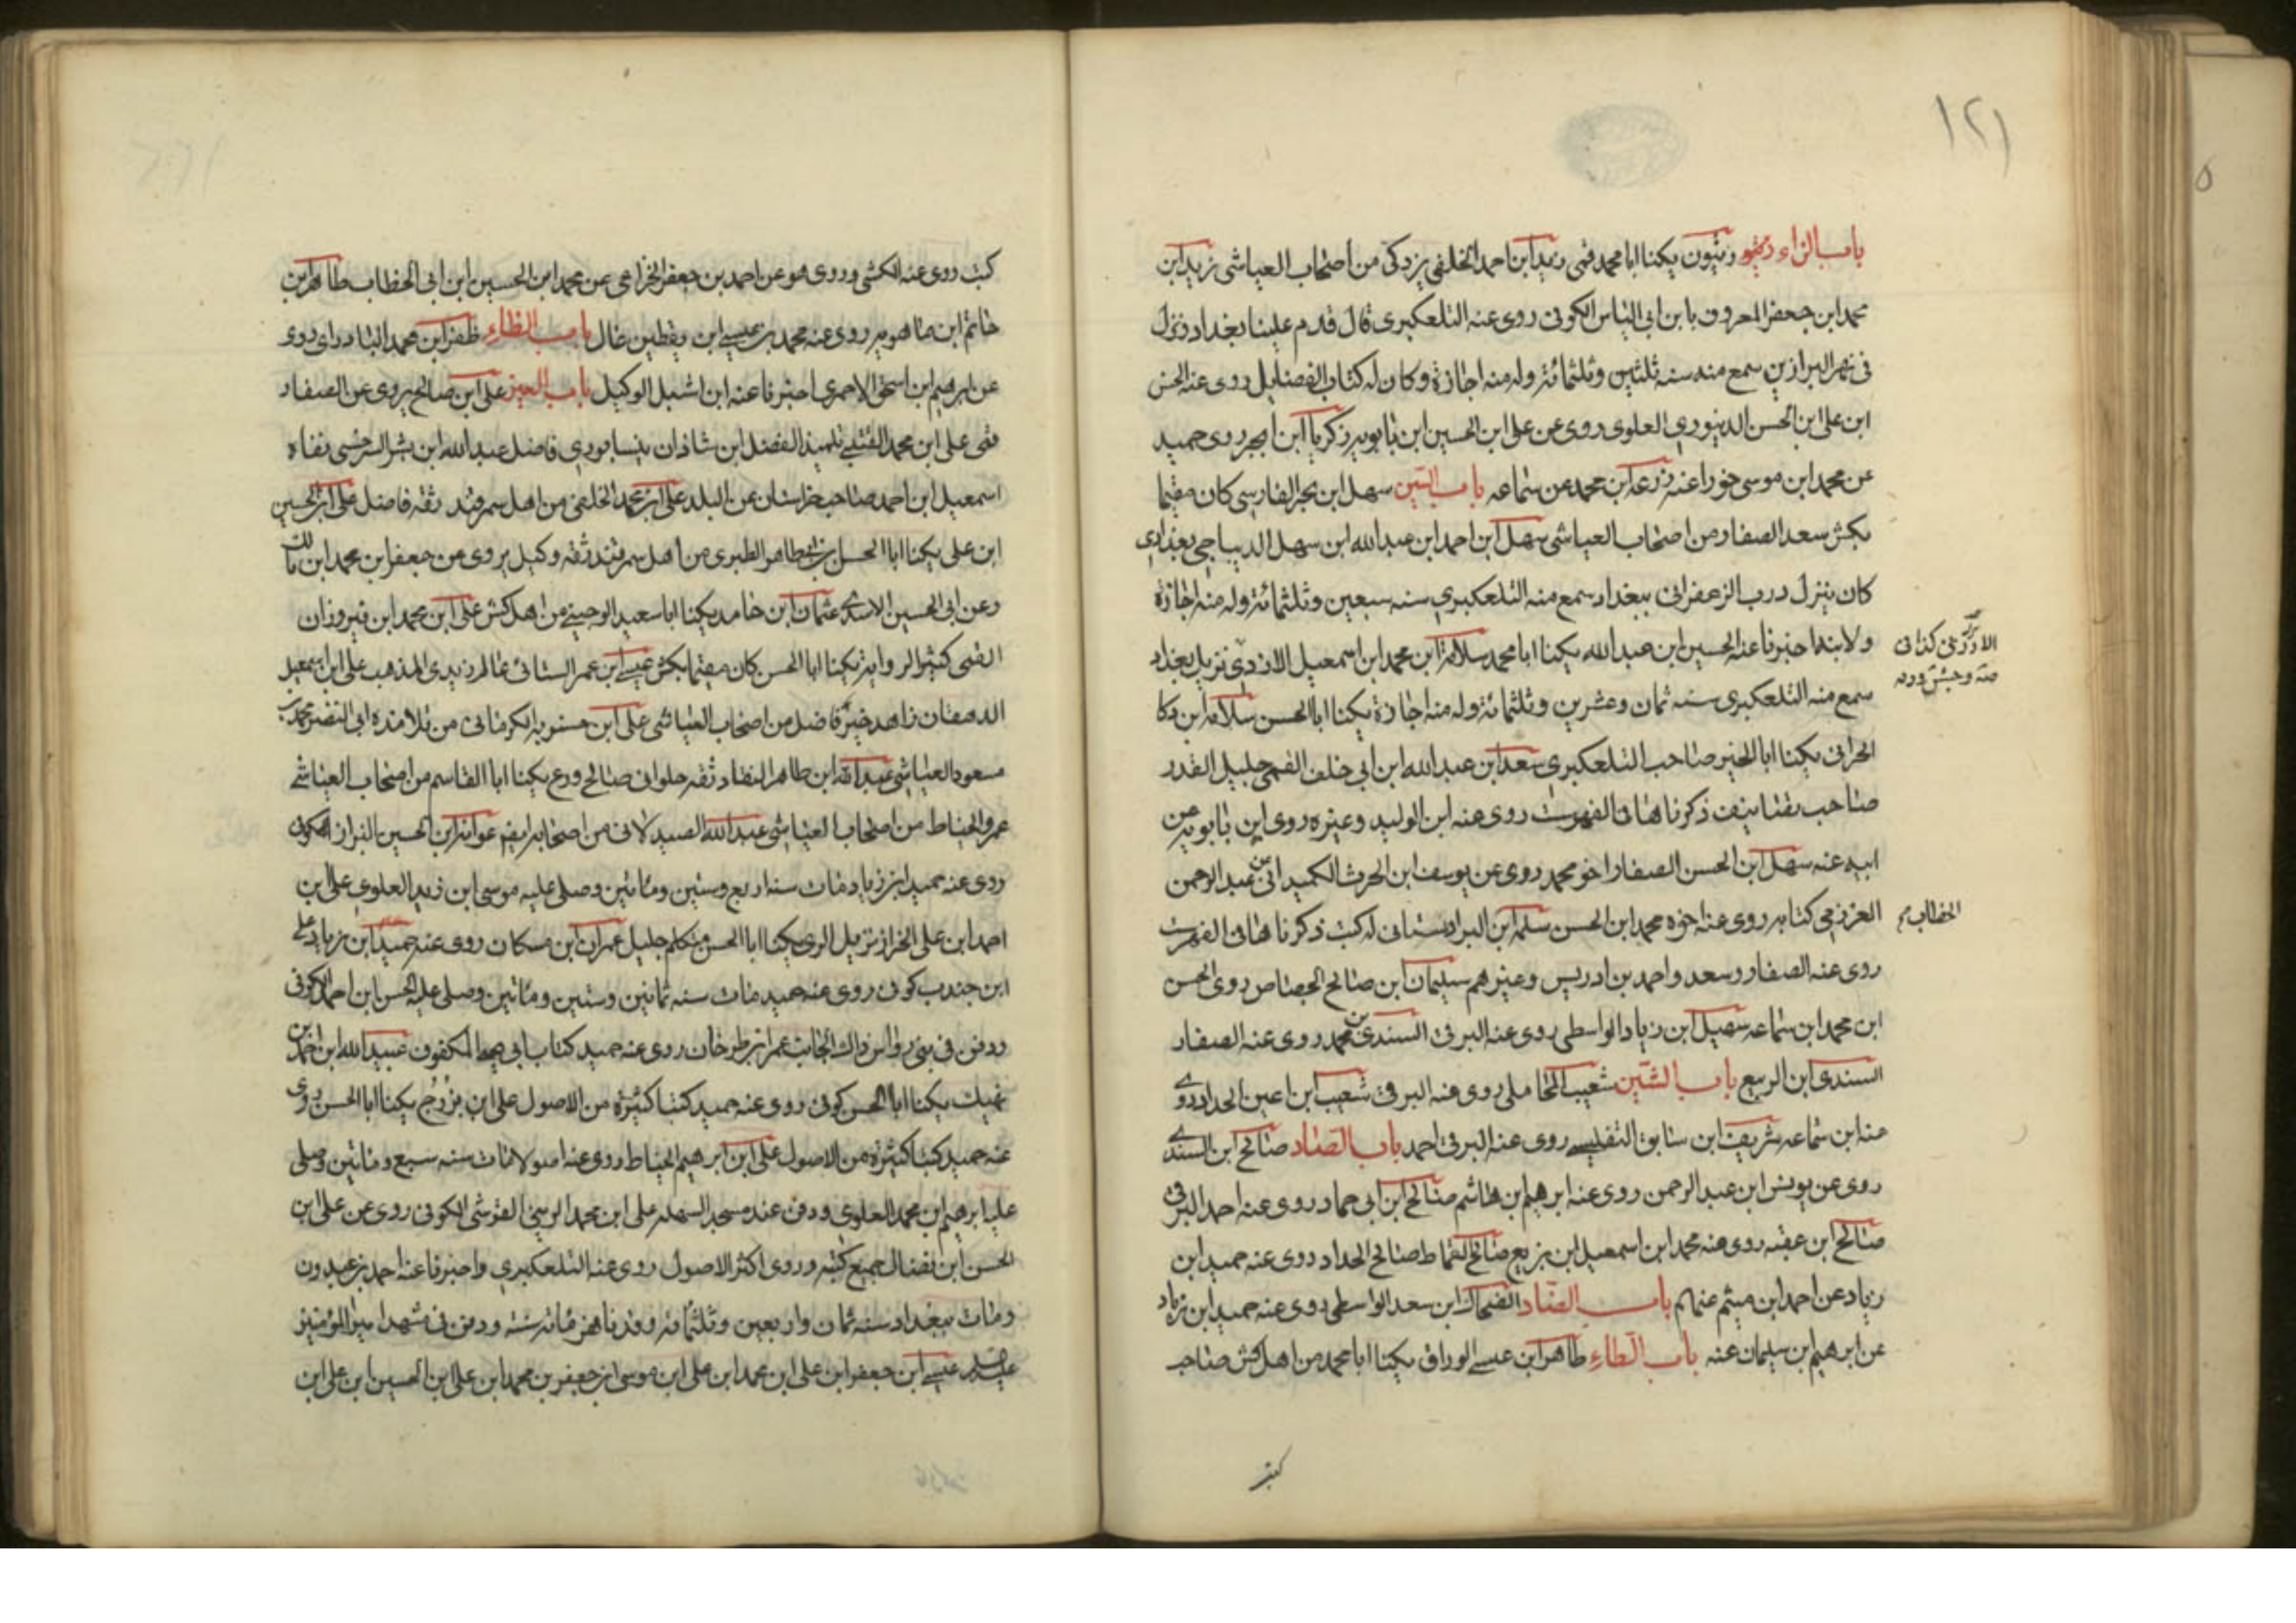 ١٢١
باب الزاء زنيو زيتون يكنا ابا محمد قمى زيد ابن احمد الخلفى يزدكى من اصحاب العياشى زيد ابن
محمد ابن جعفر المعروف بابن ابى الياس الكوفى روى عنه التلعكبرى قال قدم علينا بغداد ونزل
فى نهر البزازين سمع منه سنه ثلثين وثلثمائة وله منه اجازة وكان له كتاب الفضايل روى عنه الحسن
ابن على ابن الحسن الدينورى العلوى روى عن على ابن الحسين ابن بابويه زكريا ابن ابجر روى حميد
عن محمد ابن موسى خورا عنه زرعة ابن محمد عن سماعه باب السين سهل ابن بحر الفارسى كان مقيما
بكش سعد الصفار من اصحاب العياشى سهل ابن احمد ابن عبد الله ابن سهل الديباجى بغدادى
كان ينزل درب الزعفرانى ببغداد سمع منه التلعكبرى سنه سبعين وثلثمائة وله منه اجازة
ولابنه اخبرنا عنه الحسين ابن عبد الله يكنا ابا محمد سلامة ابن محمد ابن اسمعيل الازدى نزيل بغداد
الارزنى كذا فى
سمع منه التلعكبرى سنه ثمان وعشرين وثلثمائة وله منه اجازة يكنا ابا الحسن سلامه ابن دكا
الحرانى يكنا ابا الخير صاحب التلعكبرى سعد ابن عبد الله ابن ابى خلف القمى جليل القدر
صاحب تصانيف ذكرناها فى الفهرست روى عنه ابن الوليد وغيره روى ابن بابويه عن
ابيه عنه سهل ابن الحسن الصفار اخو محمد روى عن يوسف ابن الحرث الكميدانى عن عبد الرحمن
العزرمى كتابه روى عنه اخوه محمد ابن الحسن سلمه ابن البراوستانى له كتب ذكرناها فى الفهرست
الخطاب
روى عنه الصفار وسعد واحمد بن ادريس وغيرهم سليمان ابن صالح الجصاص روى الحسن
ابن محمد ابن سماعه سهيل ابن زياد الواسطى روى عنه البرقى السندى بن محمد روى عنه الصفار
السندى ابن الربيع باب الشين شعيب المحاملى روى عنه البرقى شعيب ابن اعين الحداد روى
عنه ابن سماعه شريف ابن سابق التفليسى روى عنه البرقى احمد باب الصاد صالح ابن السندى
روى عن يونس ابن عبد الرحمن روى عنه ابرهيم ابن هاشم صالح ابن ابى حماد روى عنه احمد البرقى
صالح ابن عقبه روى عنه محمد ابن اسمعيل ابن بزيع صالح القماط صالح الحداد روى عنه حميد ابن
زياد عن احمد ابن ميثم عنهام باب الضاد الضحاك ابن سعد الواسطى روى عنه حميد ابن زياد
عن ابرهيم ابن سليمان عنه باب الطاء طاهر ابن عيسى الوراق يكنا ابا محمد من اهل كش صاحب
كتب
كتب روى عنه الكشى وروى هو عن احمد بن جعفر الخزاعى عن محمد ابن الحسين ابن ابى الخطاب طاهر ابن
حاتم ابن ماهويه روى عنه محمد بن عيسى ابن يقطين غال باب الظاء ظفر ابن محمد البادراى روى
عن ابرهيم ابن اسحق الاحمرى اخبرنا عنه ابن اشبل الوكيل باب العين على ابن صالح يروى عن الصفار
قمى على ابن محمد القتيبى تلميذ الفضل ابن شاذان نيسابورى فاضل عبد الله ابن بشر السرخسى نفاه
اسمعيل ابن احمد صاحب خراسان عن البلد على ابن محمد الخلفى من اهل سمرقند ثقه فاضل على ابن الحسين
ابن على يكنا ابا الحسن ابن طاهر الطبرى من اهل سمرقند ثقه وكيل يروى عن جعفر ابن محمد ابن مالك
وعن ابى الحسين الاسدى عثمان ابن حامد يكنا ابا سعيد الوجينى من اهل كش على ابن محمد ابن فيروزان
القمى كثير الرواية يكنا ابا الحسن كان مقيما بكش عيسى ابن عمر السنانى عالم زيدى المذهب على ابن اسمعيل
الدهقان زاهد خير فاضل من اصحاب العياشى على ابن حسنويه الكرمانى من تلامذه ابى النضر محمد بن
مسعود العياشى عبد الله ابن طاهر النقار ثقه حلوانى صالح ورع يكنا ابا القاسم من اصحاب العياشى
عمرو الخياط من اصحاب العياشى عبد الله الصيدلانى من اصحابه ايضا عوانة ابن الحسين البزاز الكوفى
روى عنه حميد ابن زياد مات سنه اربع وستين ومائتين وصلى عليه موسى ابن زيد العلوى على ابن
احمد ابن على الخزاز نزيل الرى يكنا ابا الحسن متكلم جليل عمران ابن مسكان روى عنه حميد ابن زياد على
ابن جندب كوفى روى عنه حميد مات سنه ثمانين وستين ومائتين وصلى عليه الحسن ابن احمد الكوفى
ودفن فى بنى رواس ذاك الجانب عمر ابن طرخان روى عنه حميد كتاب ابى يحيى المكفوف عبيد الله ابن احمد بن
نهيك يكنا ابا الحسن كوفى روى عنه حميد كتبا كثيرة من الاصول على ابن بزرج يكنا ابا الحسن روى
عنه حميد كتبا كثيرة من الاصول على ابن ابرهيم الخياط روى عنه اصولا مات سنه سبع ومائتين وصلى
عليه ابرهيم ابن محمد العلوى ودفن عند مسجد السهله على ابن محمد الزبير القرشى الكوفى روى عن على ابن
الحسن ابن فضال جميع كتبه وروى اكثر الاصول روى عنه التلعكبرى واخبرنا عنه احمد بن عبدون
ومات ببغداد سنه ثمان واربعين وثلثمائة وقد ناهز مائة سنة ودفن فى مشهد امير المؤمنين
عليه السلم عيسى ابن جعفر ابن على ابن محمد ابن على ابن موسى ابن جعفر بن محمد ابن على ابن الحسين ابن على ابن